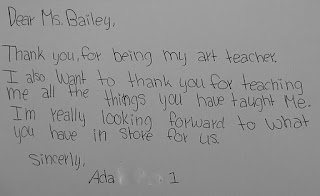 Dear Ms. Bailey,
Thank you, for being my art teacher.
I also want to thank you for teaching
me all the things you have taught me.
Im really looking forward to what
you have in store for us.
Sincerly,
Ada 1